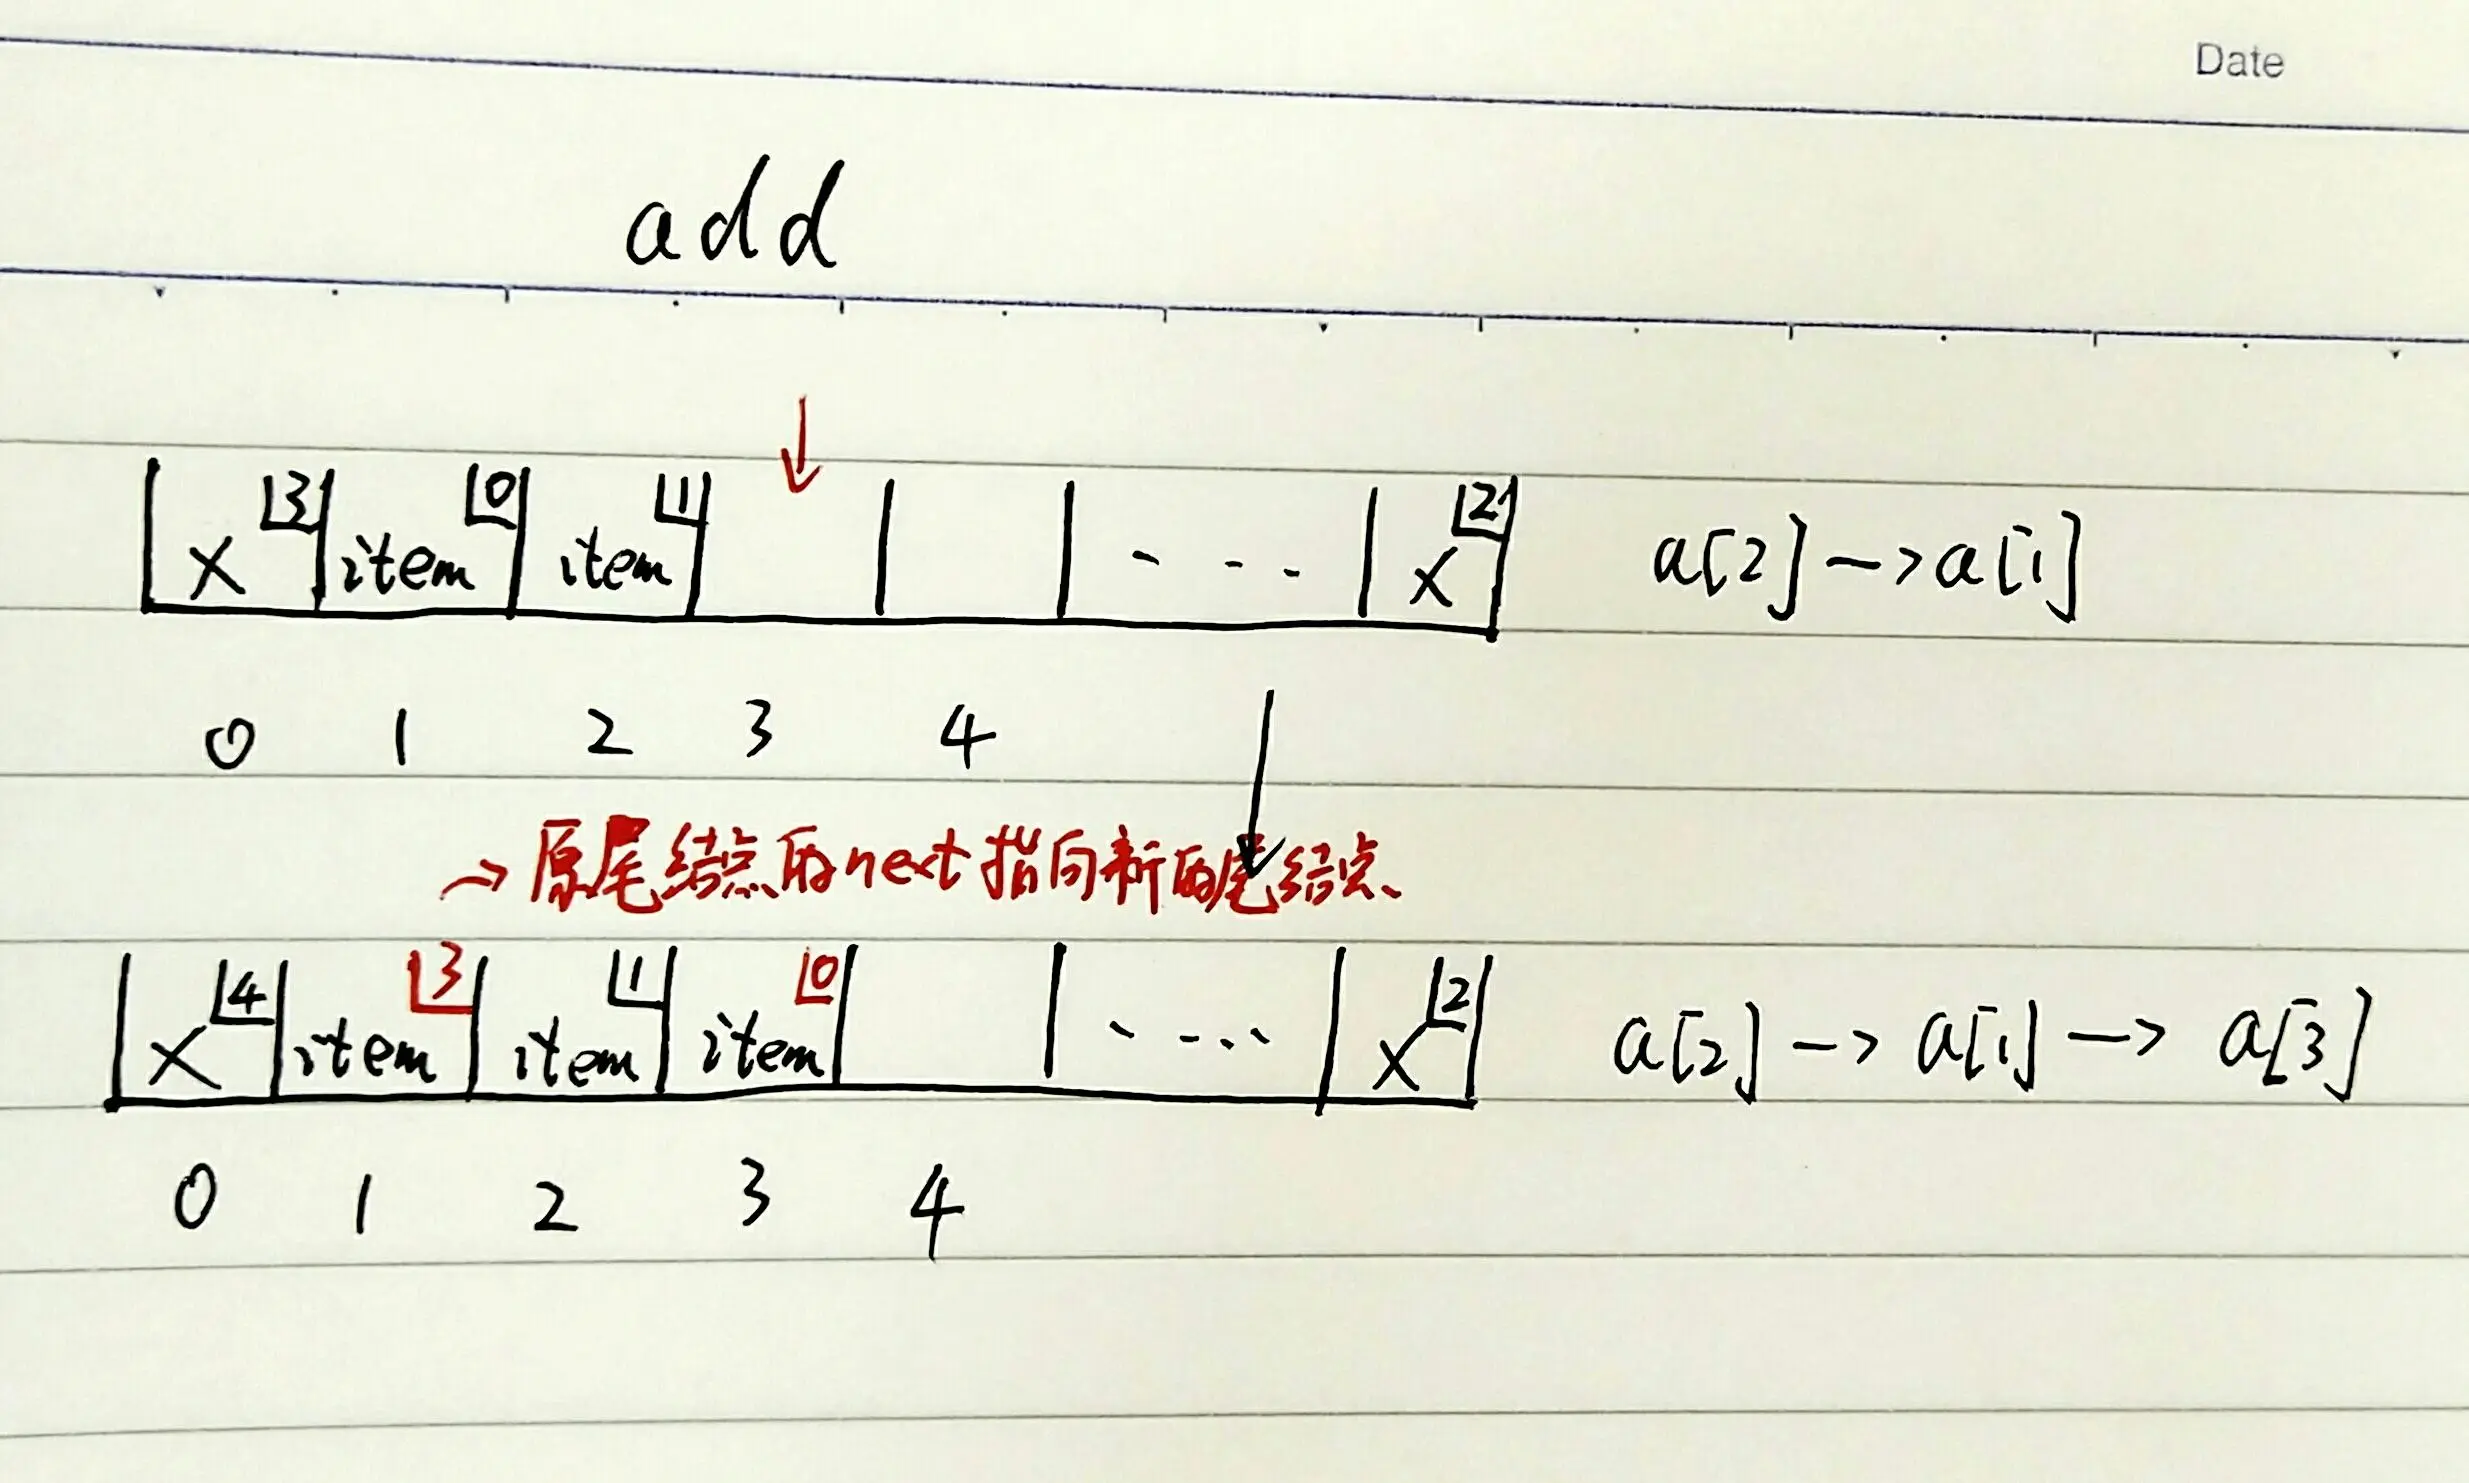 Date
add
X 3 item 0 item 1 - - - X 2 a[2] -> a[1]
0 1 2 3 4
→ 原尾结点的next指向新的尾结点、
X 4 item 3 item 1 item 0 - - - - X 2 a[2] -> a[1] -> a[3]
0 1 2 3 4